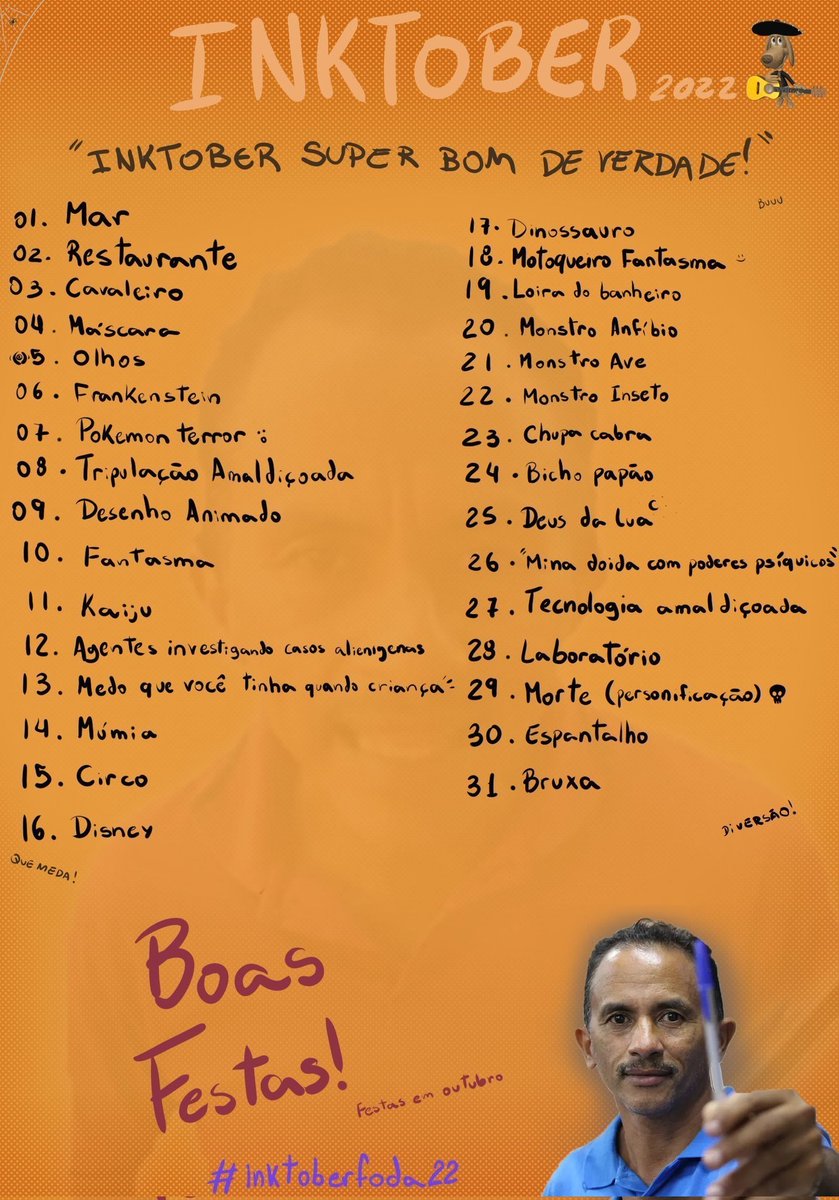 INKTOBER
2022
"INKTOBER SUPER BOM DE VERDADE!"
BUUU
01. Mar
02. Restaurante
03. Cavaleiro
04. Máscara
05. Olhos
06. Frankenstein
07. Pokemon terror
08. Tripulação Amaldiçoada
09. Desenho Animado
10. Fantasma
11. Kaiju
12. Agentes investigando casos alienigenas
13. Medo que você tinha quando criança
14. Múmia
15. Circo
16. Disney
QUE MEDA!
17. Dinossauro
18. Motoqueiro Fantasma
19. Loira do banheiro
20. Monstro Anfíbio
21. Monstro Ave
22. Monstro Inseto
23. Chupa cabra
24. Bicho papão
25. Deus da Lua
26. "Mina doida com poderes psíquicos"
27. Tecnologia amaldiçoada
28. Laboratório
29. Morte (personificação)
30. Espantalho
31. Bruxa
DIVERSÃO!
Boas
Festas!
Festas em outubro
#inktoberfoda22